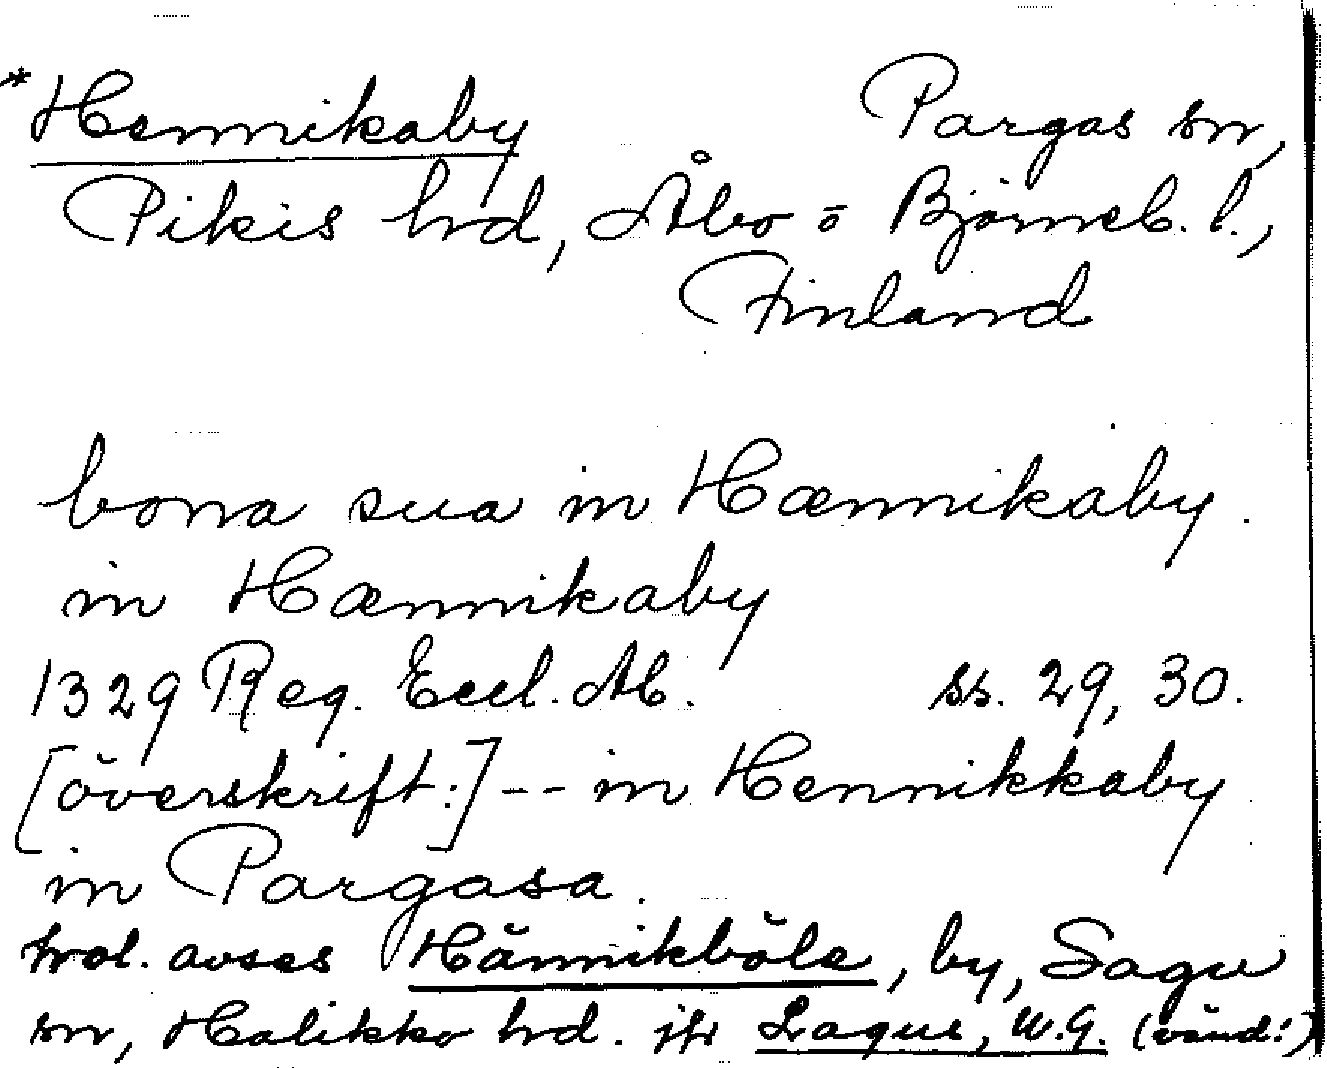 *Hennikaby Pargas sn,
Pikis hrd, Åbo o Björneb. l.,
Finland
bona sua in Hænnikaby.
in Hænnikaby
1329 Reg. Eccl. Ab. ss. 29, 30.
[överskrift:] -- in Hennikkaby
in Pargasa.
trol. avses Hännikböle, by, Sagu
sn, Halikko hrd. jfr Lagus, W.G. (vänd!)